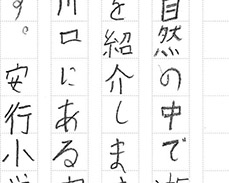 自然の中で
を紹介しま
川口にある
す。安行小